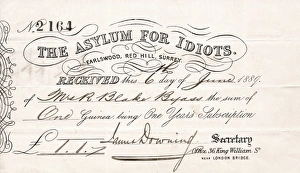 N. 2164
THE ASYLUM FOR IDIOTS.
EARLSWOOD, RED HILL, SURREY.
RECEIVED this 6th day of June 1889.
of Mrs R. Blake Byass the sum of
One Guinea being One Year's Subscription
£1.1.-
James Downing
Secretary
Office 36 King William St
NEAR LONDON BRIDGE.